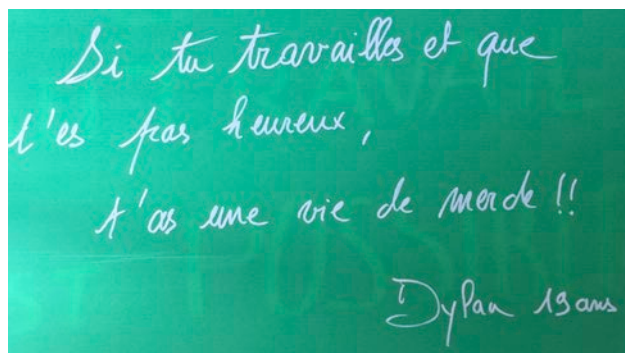 Si tu travailles et que
t'es pas heureux,
t'as une vie de merde !!
Dylan 19 ans